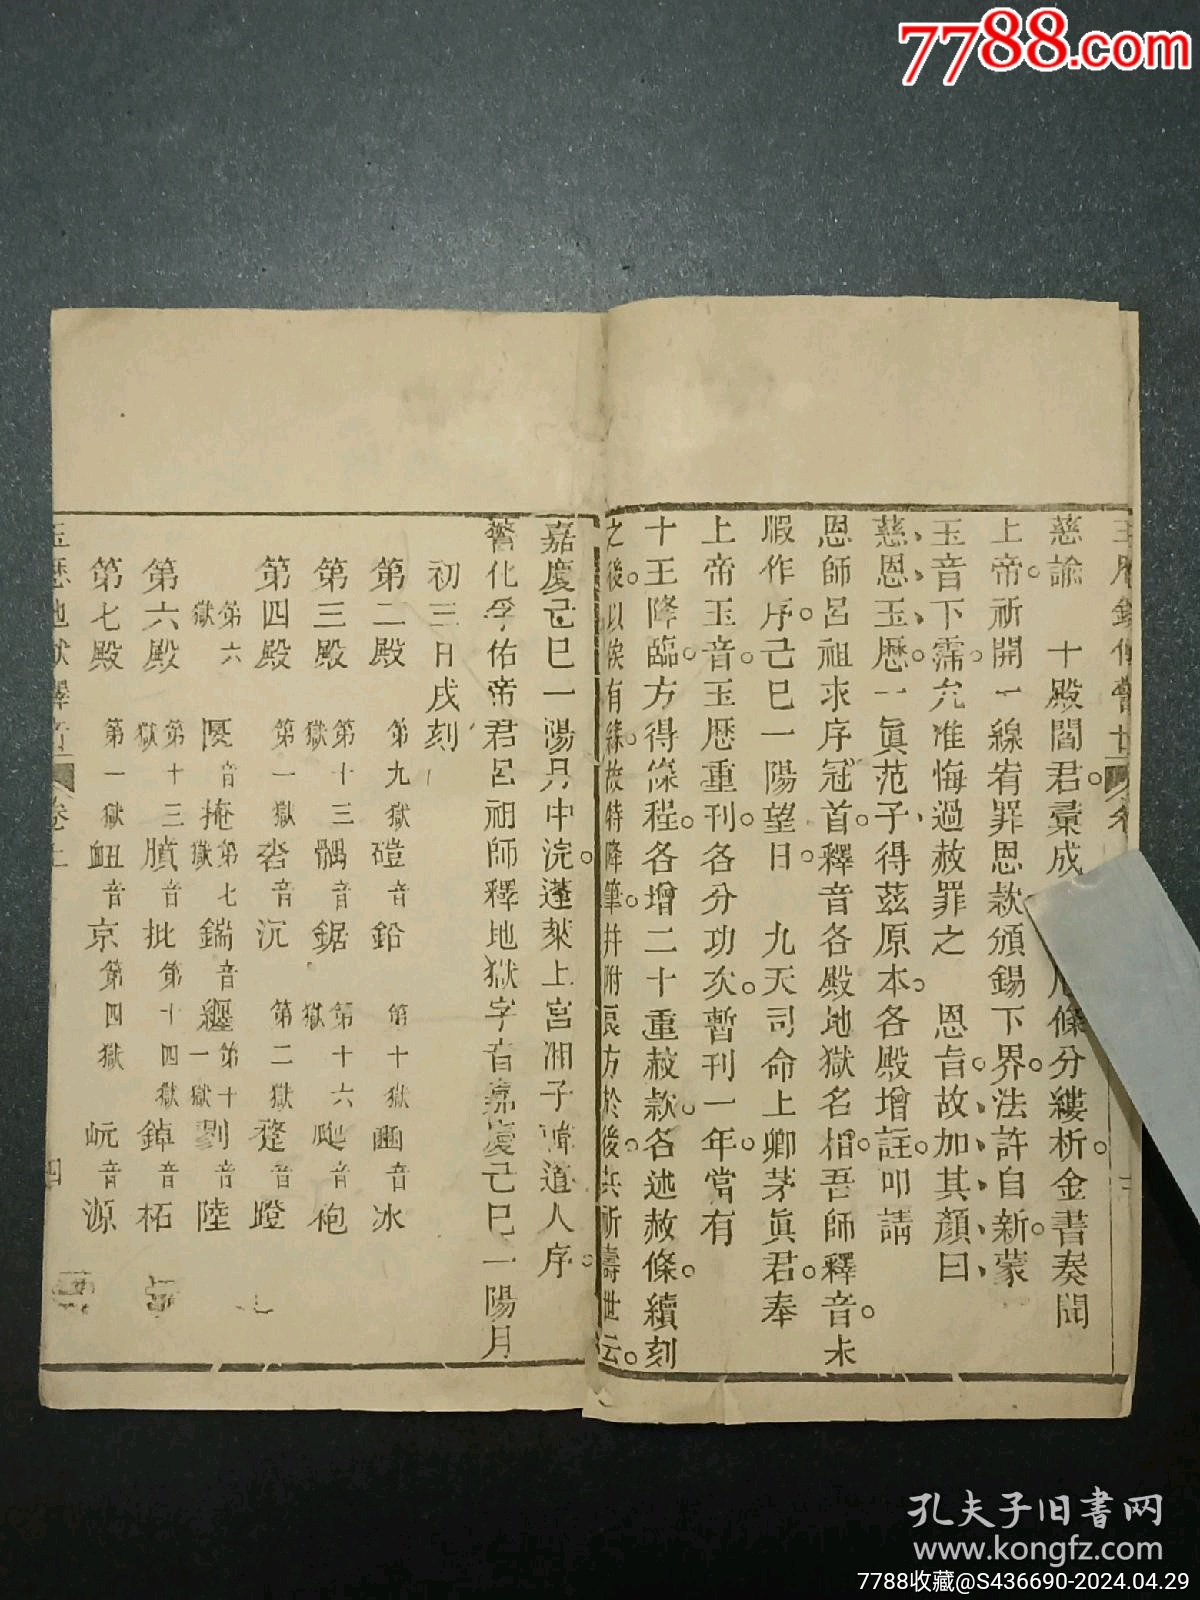 7788.com
慈諭 十殿閻君。彙成
條分縷析。金書奏聞
上帝。祈開一線宥罪恩款頒錫下界。法許自新。蒙
玉音下霈。允准悔過赦罪之 恩旨。故加其顏曰
慈恩玉歷。一眞范子得茲原本。各殿增註。叩請
恩師呂祖求序冠首。釋音各殿地獄名相。吾師釋音。未
暇作序。己巳一陽望日。 九天司命上卿茅眞君。奉
上帝玉音。玉歷重刊。各分功次。暫刊一年。當有
十王降臨。方得條程。各增二十重赦款。各述赦條。續刻
之後。以俟有緣。故特降筆。并附哀方於後。共祈壽世云。
嘉慶己巳一陽月中浣。蓬萊上宮湘子韓道人序。
警化孚佑帝君呂祖師釋地獄字音嘉慶己巳一陽月
初三日戌刻
第二殿 第九獄磑音鉛 第十獄凾音冰
第三殿 第十三獄髃音鋸 第十六獄音砲
第四殿 第一獄沓音沉 第二獄音蹬
第六獄音掩 第七獄鍴音纒 第十一獄劉音陸
第六殿 第十三獄音批 第十四獄音柘
第七殿 第一獄衄音京 第四獄岏音源
玉歷地獄釋音 卷上 四
孔夫子旧書网
www.kongfz.com
7788收藏@S436690-2024.04.29